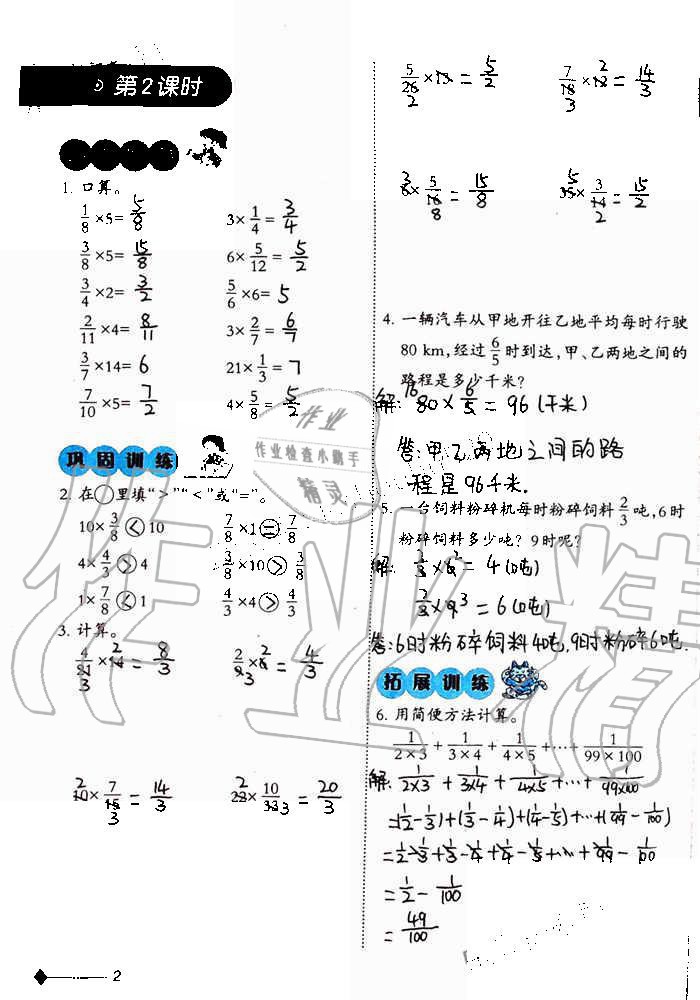 第2课时
1. 口算。
1/8×5= 5/8 3×1/4= 3/4
3/8×5= 15/8 6×5/12= 5/2
3/4×2= 3/2 5/6×6= 5
2/11×4= 8/11 3×2/7= 6/7
3/7×14= 6 21×1/3= 7
7/10×5= 7/2 4×5/8= 5/2
巩固训练
2. 在○里填“>”“<”或“=”。
10×3/8 < 10 7/8×1 = 7/8
4×4/3 > 4 3/8×10 > 3/8
1×7/8 < 1 4/3×4 > 4/3
3. 计算。
4/21×14= 8/3 2/9×6= 4/3
10×7/15= 14/3 = 20/3
5/26×13= 5/2 7/18×12= 14/3
3 8 ×5/16= 15/8 = 15/2
4. 一辆汽车从甲地开往乙地平均每时行驶
80 km,经过6/5时到达,甲、乙两地之间的
路程是多少千米?
解: 80×6/5=96(千米)
答:甲乙两地之间的路
程是96千米.
5. 一台饲料粉碎机每时粉碎饲料2/3吨,6时
粉碎饲料多少吨? 9时呢?
解: 2/3×6=4(吨)
2/3×9=6(吨)
答:6时粉碎饲料4吨,9时粉碎6吨.
拓展训练
6. 用简便方法计算。
1/2×3+1/3×4+1/4×5+…+1/99×100
解: 1/2×3+1/3×4+1/4×5+…+1/99×100
=(1/2-1/3)+(1/3-1/4)+(1/4-1/5)+…+(1/99-1/100)
=1/2-1/3+1/3-1/4+1/4-1/5+…+1/99-1/100
=1/2-1/100
=49/100
2
作业
作业检查小助手
精灵
作业精